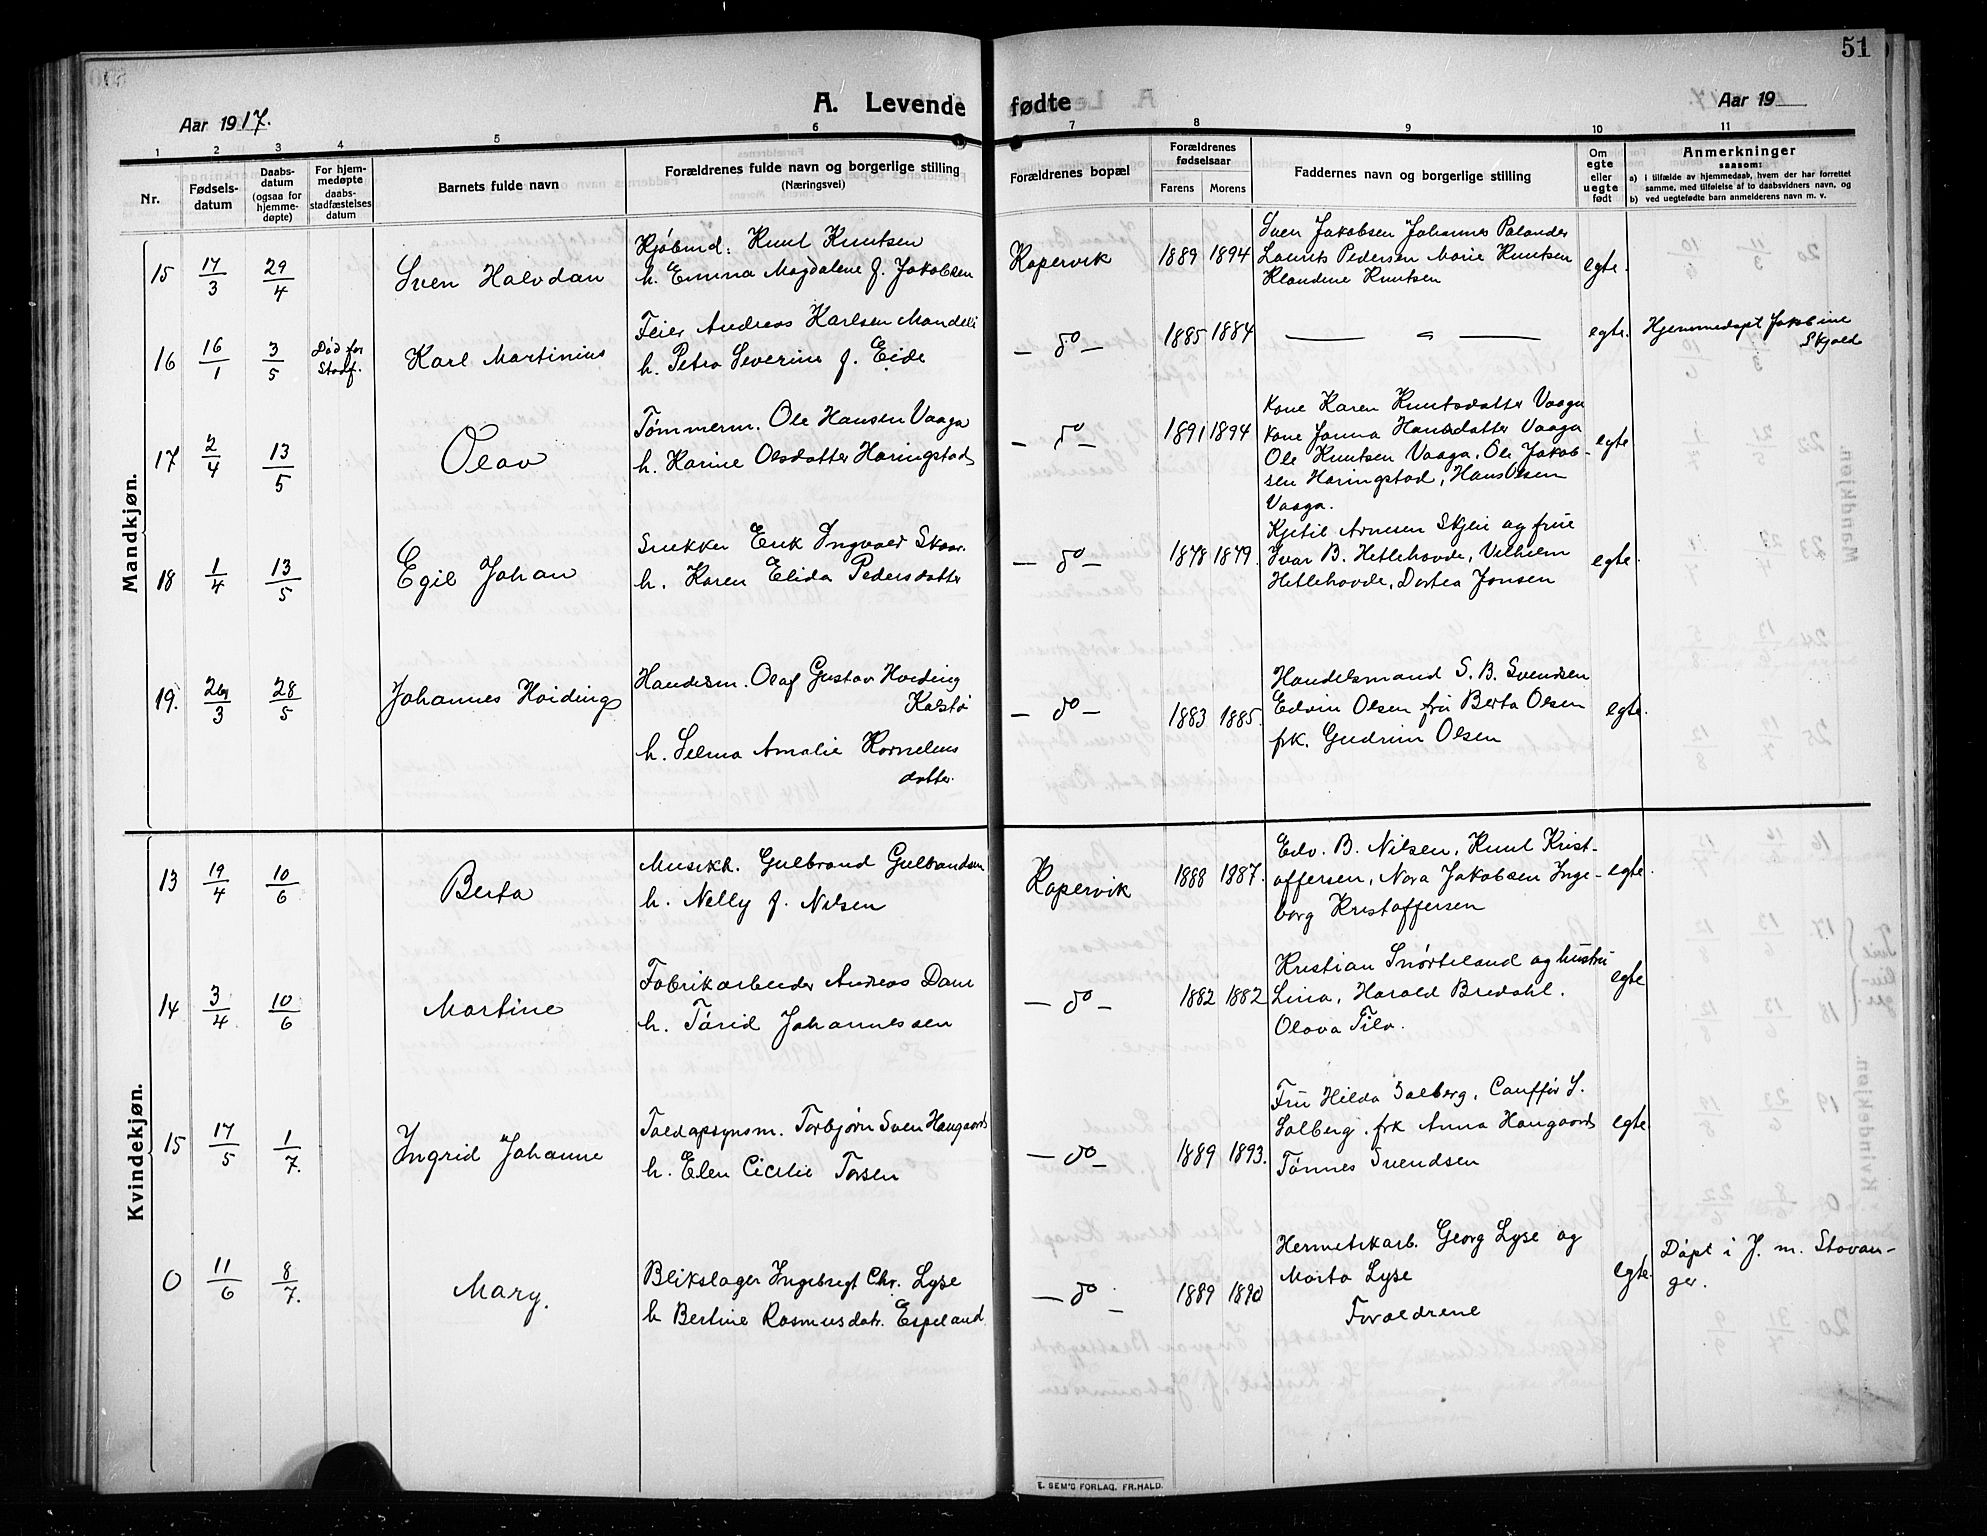 51
A. Levende fødte
Aar 1917.
Aar 19
1 2 3 4 5 6 7 8 9 10 11
Nr.
Fødsels-
datum
Daabs-
datum
(ogsaa for
hjemme-
døpte)
For hjem-
medøpte
daabs-
stadfæstelses
datum
Barnets fulde navn
Forældrenes fulde navn og borgerlige stilling
(Næringsvei)
Forældrenes bopæl
Forældrenes
fødselsaar
Farens Morens
Faddernes navn og borgerlige stilling
Om
egte
eller
uegte
født
Anmerkninger
saasom:
a) i tilfælde av hjemmedaab, hvem der har forrettet
samme, med tilføielse af to daabsvidners navn, og
b) ved uegtefødte barn anmelderens navn m. v.
Mandkjøn.
15 17/3 29/4 Sven Halvdan
Kjøbmd. Knut Knutsen
h. Emma Magdalene f. Jakobsen
Kopervik 1889 1894
Sven Jakobsen Johannes Palander
Laurits Pedersen Marie Knutsen
Klandine Knutsen
egte.
16 16/1 3/5
Død før
Stadf.
Karl Martinius
Feier Andreas Karlsen Mandeli
h. Petra Severine f. Eide
— do — 1885 1884 — " — egte.
Hjemmedøpt Jakobine
Skjold
17 2/4 13/5 Olav
Tømmerm. Ole Hansen Vaaga
h. Karine Olsdatter Haringstad
— do — 1891 1894
Kone Karen Knutsdatter Vaaga
Kone Janna Hansdatter Vaaga
Ole Knutsen Vaaga, Ole Jakob-
sen Haringstad, Hans Olsen
Vaaga.
egte
18 1/4 13/5 Egil Johan
Snekker Erik Ingvald Skaar.
h. Karen Elida Pedersdatter
— do — 1878 1879
Kjetil Arnesen Skjeie og frue
Ivar B. Hetlehovde, Vilhelm
Hetlehovde, Dortea Jonsen
egte.
19. 264/3 28/5 Johannes Hoiding
Handelsm. Olaf Gustav Hoiding
Kalstø
h. Selma Amalie Kornelius
datter.
— do — 1883 1885.
Handelsmand S. B. Svendsen
Edvin Olsen fru Berta Olsen
frk. Gudrun Olsen
egte.
Kvindekjøn.
13 19/4 10/6 Berta
Musikh. Gulbrand Gulbrandsen
h. Nelly f. Nilsen
Kopervik 1888 1887.
Edv. B. Nilsen, Knut Krist-
offersen, Nora Jakobsen Inge-
borg Kristoffersen
egte.
14 3/4 10/6 Martine
Fabrikarbeider Andreas Dam
h. Tørid Johannessen
— do — 1882 1882
Kristian Snørteland og hustru
Lina, Harald Bredahl.
Olava Tilv.
egte
15 17/5 1/7. Ingrid Johanne
Toldopsynsm. Torbjørn Sven Haugaard
h. Elen Cicilie Torsen
— do — 1889 1893.
Fru Hilda Solberg, Cauffør S.
Solberg. frk Anna Haugaard
Tønnes Svendsen
egte
0 11/6 8/7. Mary.
Blikslager Ingebregt Chr. Lyse
h Bertine Rasmusdatr. Espeland
— do — 1889 1890
Hermetikarb. Georg Lyse og
Marta Lyse
Forældrene
egte.
Døpt i J. m. Stavan-
ger.
E. SEM'S FORLAG, FR.HALD.